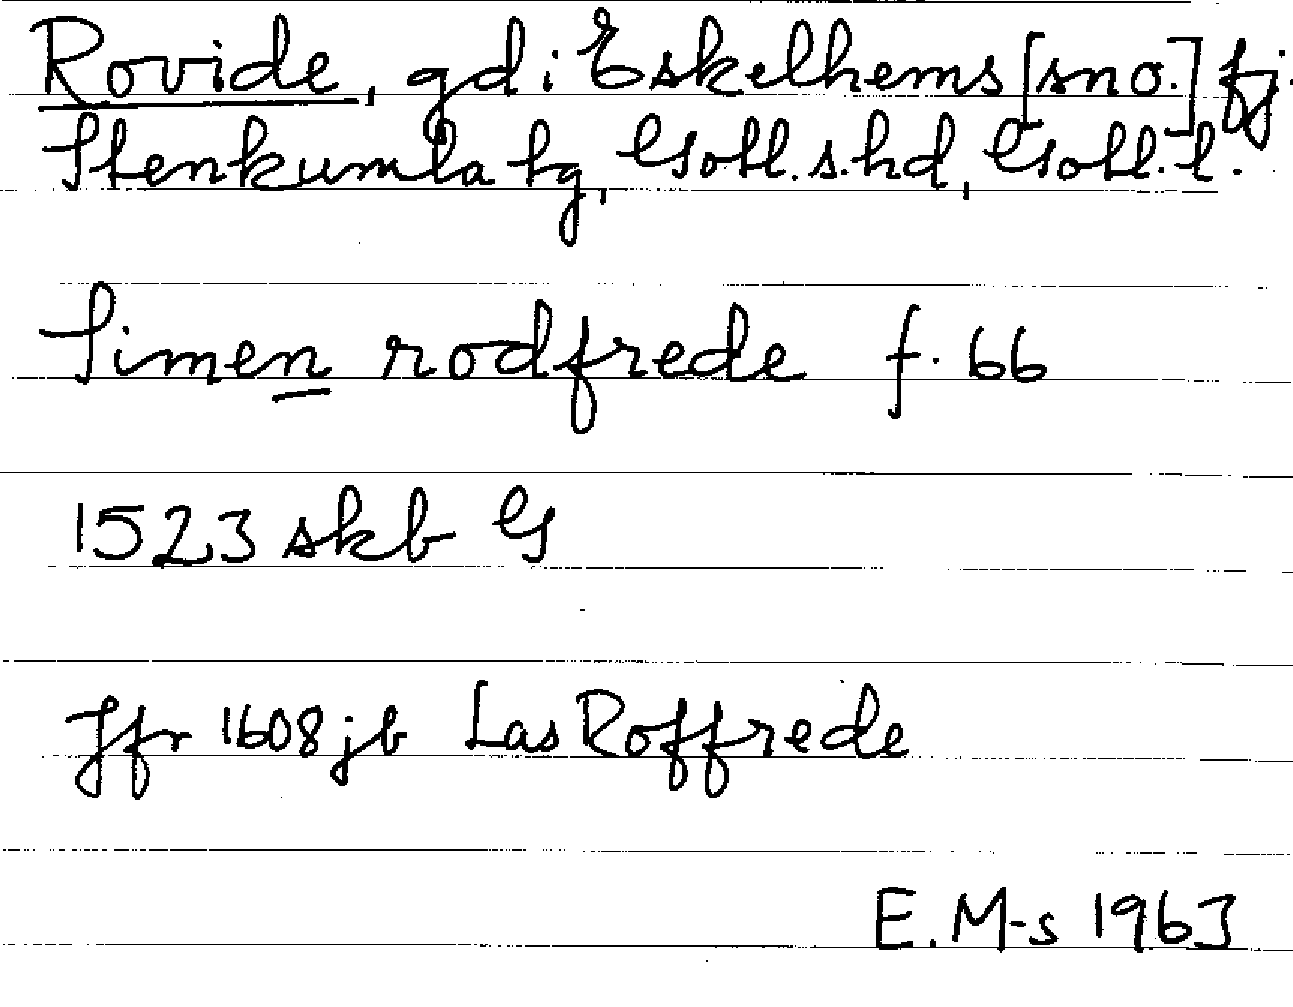 Rovide, gd i Eskelhems [sno.] fj.
Stenkumla tg, Gotl. s. hd, Gotl. l.
Simen rodfrede f. 66
1523 skb G
Jfr 1608 jb Las Roffrede
E. M-s 1963